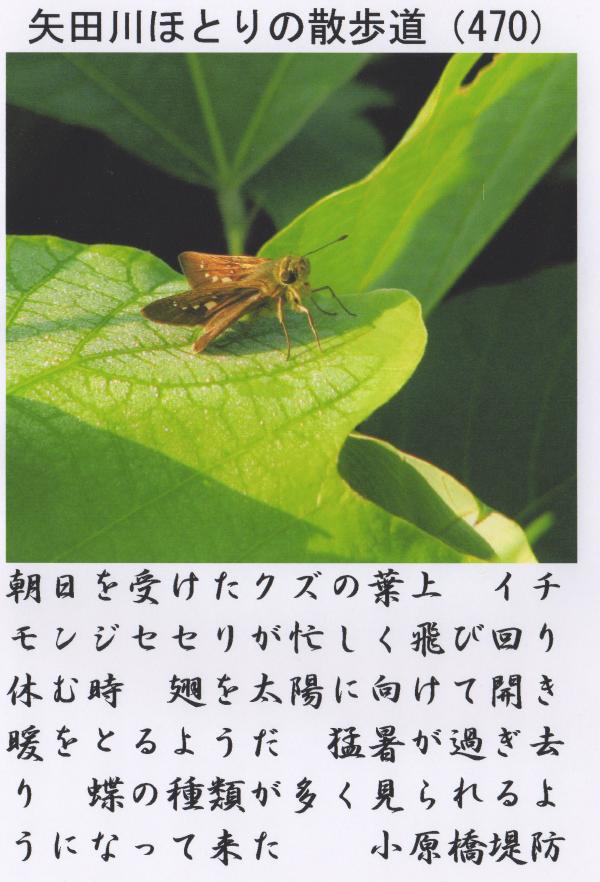 矢田川ほとりの散歩道（470）
朝日を受けたクズの葉上　イチ
モンジセセリが忙しく飛び回り
休む時　翅を太陽に向けて開き
暖をとるようだ　猛暑が過ぎ去
り　蝶の種類が多く見られるよ
うになって来た　　小原橋堤防